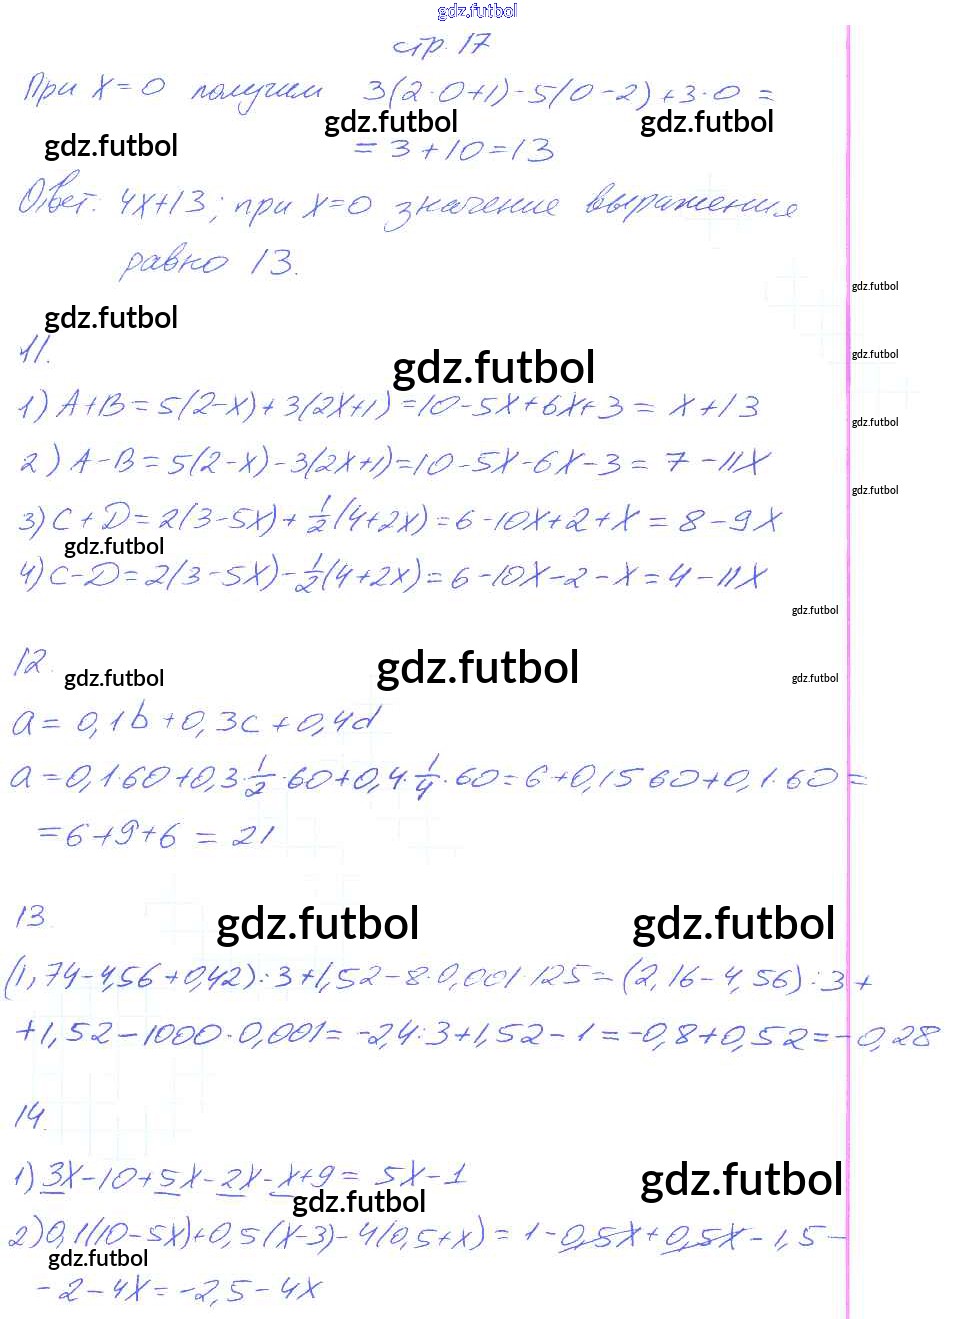 gdz.futbol
стр. 17
При x=0 получим 3(2·0+1)-5(0-2)+3·0=
gdz.futbol gdz.futbol gdz.futbol
=3+10=13
Ответ: 4x+13; при x=0 значение выражения
равно 13.
gdz.futbol
gdz.futbol
11.
gdz.futbol
gdz.futbol
1) A+B=5(2-x)+3(2x+1)=10-5x+6x+3=x+13
gdz.futbol
2) A-B=5(2-x)-3(2x+1)=10-5x-6x-3=7-11x
gdz.futbol
3) C+D=2(3-5x)+1/2(4+2x)=6-10x+2+x=8-9x
gdz.futbol
4) C-D=2(3-5x)-1/2(4+2x)=6-10x-2-x=4-11x
gdz.futbol
12.
gdz.futbol gdz.futbol gdz.futbol
a=0,1b+0,3c+0,4d
a=0,1·60+0,3·1/2·60+0,4·1/4·60=6+0,15 60+0,1·60=
=6+9+6=21
13.
gdz.futbol gdz.futbol
(1,74-4,56+0,42):3+1,52-8·0,001·125=(2,16-4,56):3+
+1,52-1000·0,001=-2,4:3+1,52-1=-0,8+0,52=-0,28
14.
1) 3x-10+5x-2x-x+9=5x-1
gdz.futbol gdz.futbol
2) 0,1(10-5x)+0,5(x-3)-4(0,5+x)=1-0,5x+0,5x-1,5-
gdz.futbol
-2-4x=-2,5-4x